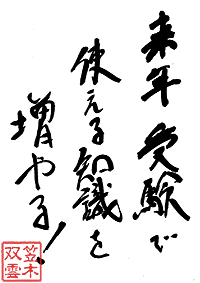 来年受験で
使える知識を
増やす！
笠木
双雲